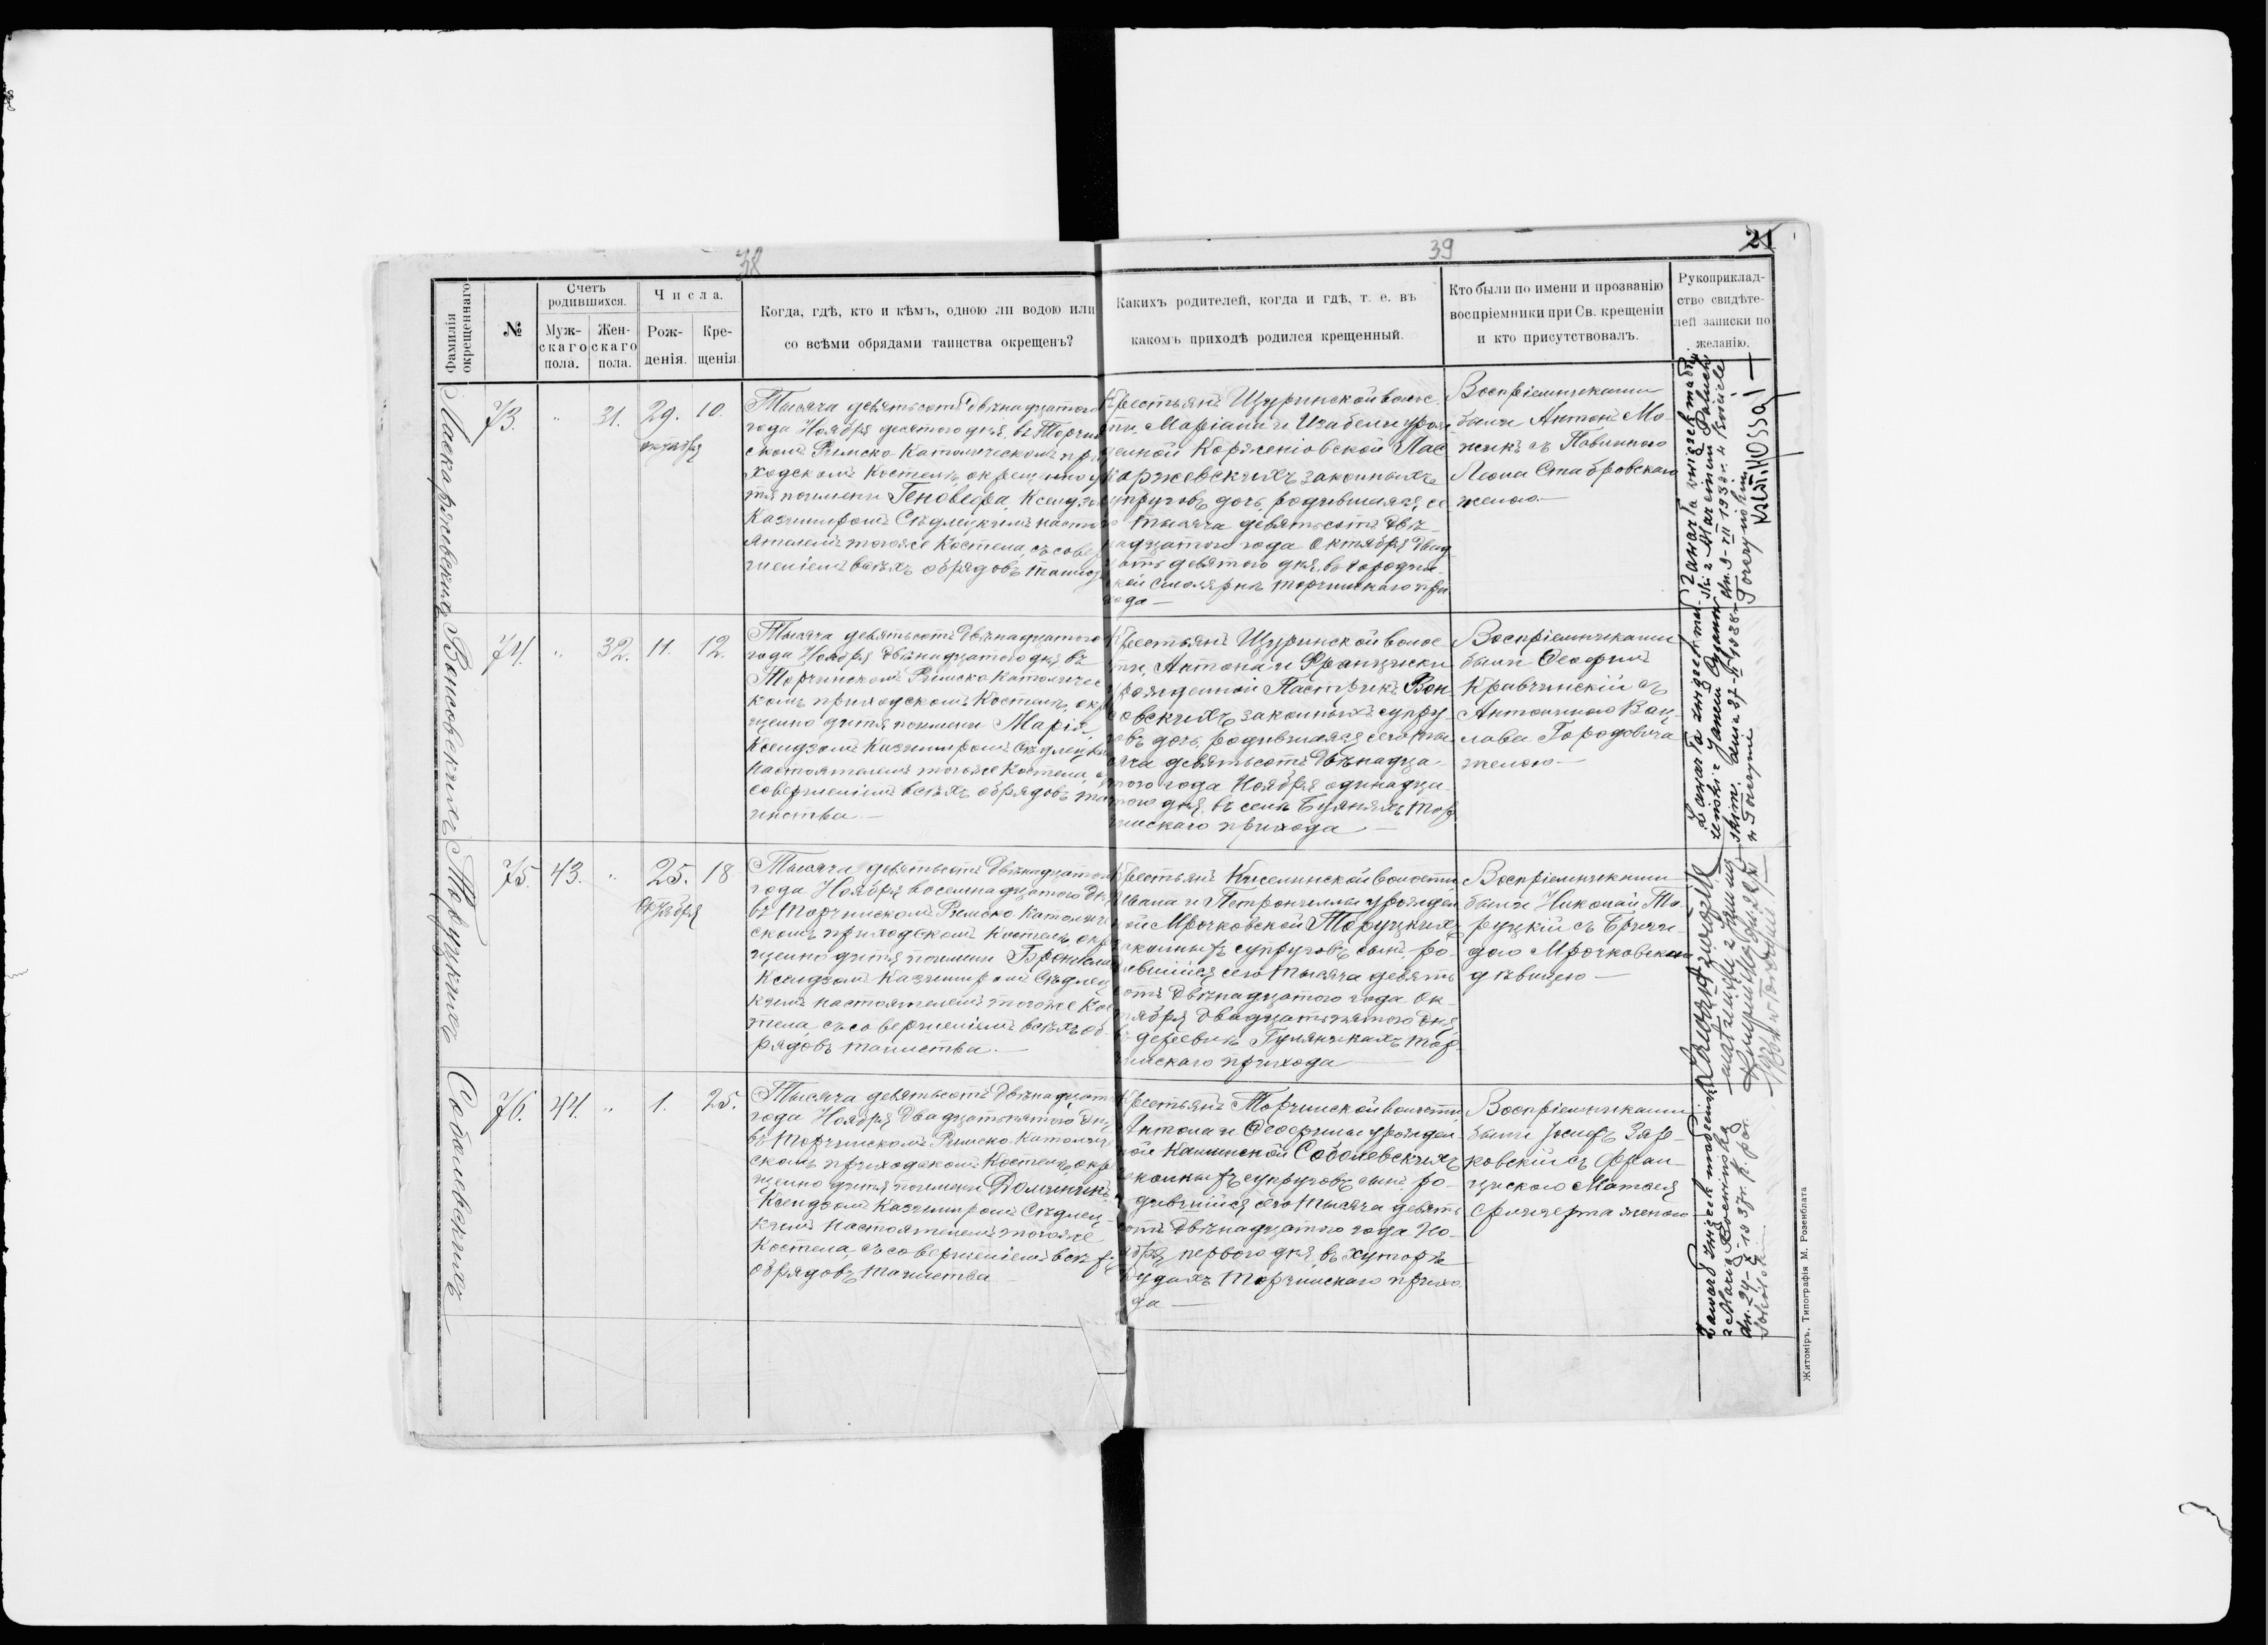 38
39
21
Фамилія окрещеннаго
№
Счетъ родившихся.
Муж-
скаго
пола.
Жен-
скаго
пола.
Числа.
Рож-
денія.
Кре-
щенія.
Когда, гдѣ, кто и кѣмъ, одною ли водою или
со всѣми обрядами таинства окрещенъ?
Какихъ родителей, когда и гдѣ, т. е. въ
какомъ приходѣ родился крещенный.
Кто были по имени и прозванію
воспріемники при Св. крещеніи
и кто присутствовалъ.
Рукоприклад-
ство свидѣте-
лей записки по
желанію.
Ласкаржевскихъ
73.
"
31.
29.
октября
10.
Тысяча девятьсотъ двѣнадцатого
года Ноября десятого дня, въ Торчин
скомъ Римско Католическомъ при
ходскомъ Костелѣ окрещено ди
тя по имени Геновефа, Ксендзом
Казимиромъ Сѣдлецкимъ насто
ятелемъ того же Костела, съ совер
шеніемъ всѣхъ обрядовъ таинс
Крестьянъ Щуринской волос-
ти, Маріана и Изабелы урож
денной Корженіовской Лас
каржевскихъ законныхъ
супруговъ дочь, родившаяся се
го тысяча девятьсотъ двѣ-
надцатого года Октября двад
цать девятого дня, въ Городни-
ской Смолярнѣ Торчинскаго при
хода —
Воспріемниками
были Антонъ Мо-
жикъ съ Павиною
Леона Стабровскаго
женою. —
Вонсовскихъ
74.
"
32.
11.
12.
Тысяча девятьсотъ двѣнадцатого
года Ноября двѣнадцатого дня въ
Торчинскомъ Римско Католичес
комъ приходскомъ Костелѣ, окр
щено дитя по имени Марія,
Ксендзомъ Казимиромъ Сѣдлецки
настоятелемъ того же Костела, с
совершеніемъ всѣхъ обрядовъ та
инства. —
Крестьянъ Щуринской волос
ти, Антона и Францишки
урожденной Пастрикъ Вон-
совскихъ законныхъ супру-
говъ дочь, родившаяся сего ты-
сяча девятьсотъ двѣнадца-
того года Ноября одинадца-
того дня, въ селѣ Буяняхъ Тор
чинскаго прихода —
Воспріемниками
были Ѳеофилъ
Кравчинскій съ
Антониною Вац-
лава Городовича
женою —
Торуцкихъ
75.
43.
"
25.
Октября
18
Тысяча девятьсотъ двѣнадцатого
года Ноября восемнадцатого дн
въ Торчинскомъ Римско Католиче
скомъ приходскомъ Костелѣ, окр
щено дитя по имени Брониславъ
Ксендзомъ Казимиромъ Сѣдлец
кимъ настоятелемъ того же Кос
тела, съ совершеніемъ всѣхъ об-
рядовъ таинства. —
Крестьянъ Киселинской волости,
Ивана и Петронелы урожден
ной Мрочковской Торуцкихъ
законныхъ супруговъ сынъ, ро-
дившійся сего тысяча девять
сотъ двѣнадцатого года Ок-
тября двадцать пятого дня,
въ деревнѣ Гуляникахъ Тор-
чинскаго прихода —
Воспріемниками
были Николай То-
руцкій съ Бриги-
дою Мрочковскою
дѣвицею —
Соболевскихъ
76.
44.
"
1.
25.
Тысяча девятьсотъ двѣнадцат
года Ноября двадцать пятого дня
въ Торчинскомъ Римско Католиче
скомъ приходскомъ Костелѣ, окре
щено дитя по имени Доминикъ
Ксендзомъ Казимиромъ Сѣдлец-
кимъ настоятелемъ того же
Костела, съ совершеніемъ всѣхъ
обрядовъ таинства —
Крестьянъ Торчинской волости,
Антона и Ѳеофилы урожден-
ной Калинской Соболевскихъ
законныхъ супруговъ сынъ, ро-
дившійся сего тысяча девять
сотъ двѣнадцатого года Но-
ября первого дня, въ хуторѣ
Будахъ Торчинскаго прихо
да —
Воспріемниками
были Іосифъ Зяр-
ковскій съ Фран-
цискою Матвея
женою
Zawarła związek małż.
z Marcinem
dn. 9-VII 1932 r. w kościele
Torczyńskim
Zawarła związek mał-
żeński z Janem
dnia 27-II 1938 r.
w Torczynie
Zawarł związek
małżeński z
Zawarł związek małżeński
z Marją
dn. 24-X 1937 r. k. par.
Житоміръ, Типографія М. Розенблата